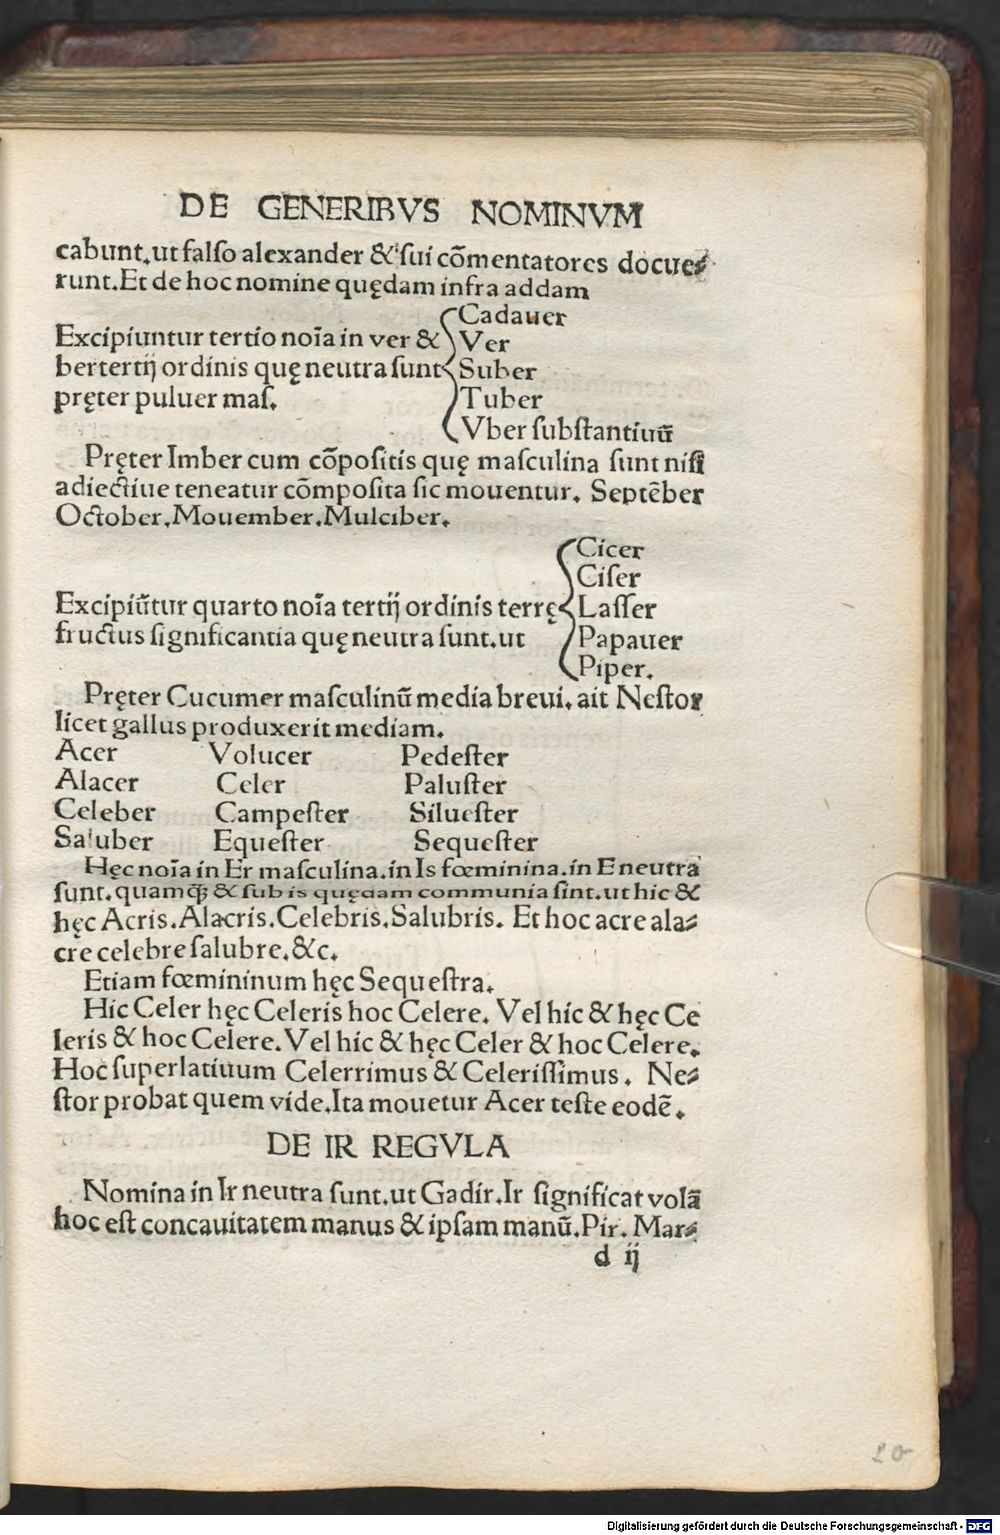 DE GENERIBVS NOMINVM
cabunt.ut falſo alexander & ſui cōmentatores docue⸗
runt.Et de hoc nomine quędam infra addam
Cadauer
Excipiuntur tertio noīa in ver & Ver
bertertij ordinis quę neutra ſunt Suber
pręter puluer maſ. Tuber
Vber ſubſtantiuū
Pręter Imber cum cōpoſitis quę maſculina ſunt niſi
adiectiue teneatur cōmpoſita ſic mouentur. Septēber
October.Mouember.Mulciber.
Cicer
Ciſer
Excipiūtur quarto noīa tertij ordinis terrę Laſſer
fructus ſignificantia quę neutra ſunt.ut Papauer
Piper.
Pręter Cucumer maſculinū media breui. ait Neſtor
licet gallus produxerit mediam.
Acer Volucer Pedeſter
Alacer Celer Paluſter
Celeber Campeſter Silueſter
Saluber Equeſter Sequeſter
Hęc noīa in Er maſculina.in Is fœminina.in E neutra
ſunt.quamq̃ & ſub is quędam communia ſint.ut hic &
hęc Acris.Alacris.Celebris.Salubris. Et hoc acre ala⸗
cre celebre ſalubre.&c.
Etiam fœmininum hęc Sequeſtra.
Hic Celer hęc Celeris hoc Celere. Vel hic & hęc Ce
leris & hoc Celere.Vel hic & hęc Celer & hoc Celere.
Hoc ſuperlatiuum Celerrimus & Celeriſſimus. Ne⸗
ſtor probat quem vide.Ita mouetur Acer teſte eodē.
DE IR REGVLA
Nomina in Ir neutra ſunt.ut Gadir.Ir ſignificat volā
hoc eſt concauitatem manus & ipſam manū.Pir. Mar⸗
d ij
20
Digitalisierung gefördert durch die Deutsche Forschungsgemeinschaft - DFG